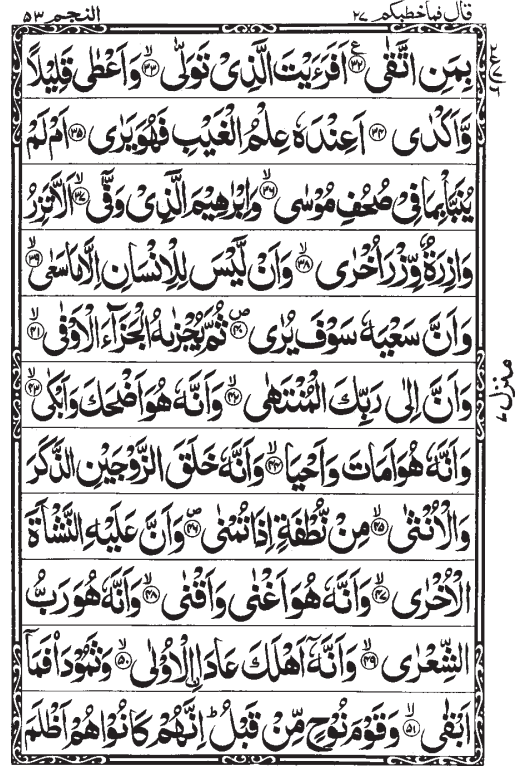 قال فما خطبكم ٢٧
النجم ٥٣
بِمَنِ اتَّقٰى ﴿٣٢﴾ اَفَرَءَيْتَ الَّذِىْ تَوَلّٰى ﴿٣٣﴾ وَاَعْطٰى قَلِيْلًا
وَّاَكْدٰى ﴿٣٤﴾ اَعِنْدَهٗ عِلْمُ الْغَيْبِ فَهُوَ يَرٰى ﴿٣٥﴾ اَمْ لَمْ
يُنَبَّاْ بِمَا فِىْ صُحُفِ مُوْسٰى ﴿٣٦﴾ وَاِبْرٰهِيْمَ الَّذِىْ وَفّٰى ﴿٣٧﴾ اَلَّا تَزِرُ
وَازِرَةٌ وِّزْرَ اُخْرٰى ﴿٣٨﴾ وَاَنْ لَّيْسَ لِلْاِنْسَانِ اِلَّا مَا سَعٰى ﴿٣٩﴾
وَاَنَّ سَعْيَهٗ سَوْفَ يُرٰى ﴿٤٠﴾ ثُمَّ يُجْزٰىهُ الْجَزَآءَ الْاَوْفٰى ﴿٤١﴾
وَاَنَّ اِلٰى رَبِّكَ الْمُنْتَهٰى ﴿٤٢﴾ وَاَنَّهٗ هُوَ اَضْحَكَ وَاَبْكٰى ﴿٤٣﴾
وَاَنَّهٗ هُوَ اَمَاتَ وَاَحْيَا ﴿٤٤﴾ وَاَنَّهٗ خَلَقَ الزَّوْجَيْنِ الذَّكَرَ
وَالْاُنْثٰى ﴿٤٥﴾ مِنْ نُّطْفَةٍ اِذَا تُمْنٰى ﴿٤٦﴾ وَاَنَّ عَلَيْهِ النَّشْاَةَ
الْاُخْرٰى ﴿٤٧﴾ وَاَنَّهٗ هُوَ اَغْنٰى وَاَقْنٰى ﴿٤٨﴾ وَاَنَّهٗ هُوَ رَبُّ
الشِّعْرٰى ﴿٤٩﴾ وَاَنَّهٗۤ اَهْلَكَ عَادَا ۨالْاُوْلٰى ﴿٥٠﴾ وَثَمُوْدَا۟ فَمَاۤ
اَبْقٰى ﴿٥١﴾ وَقَوْمَ نُوْحٍ مِّنْ قَبْلُ ؕ اِنَّهُمْ كَانُوْا هُمْ اَظْلَمَ
منزل ٧